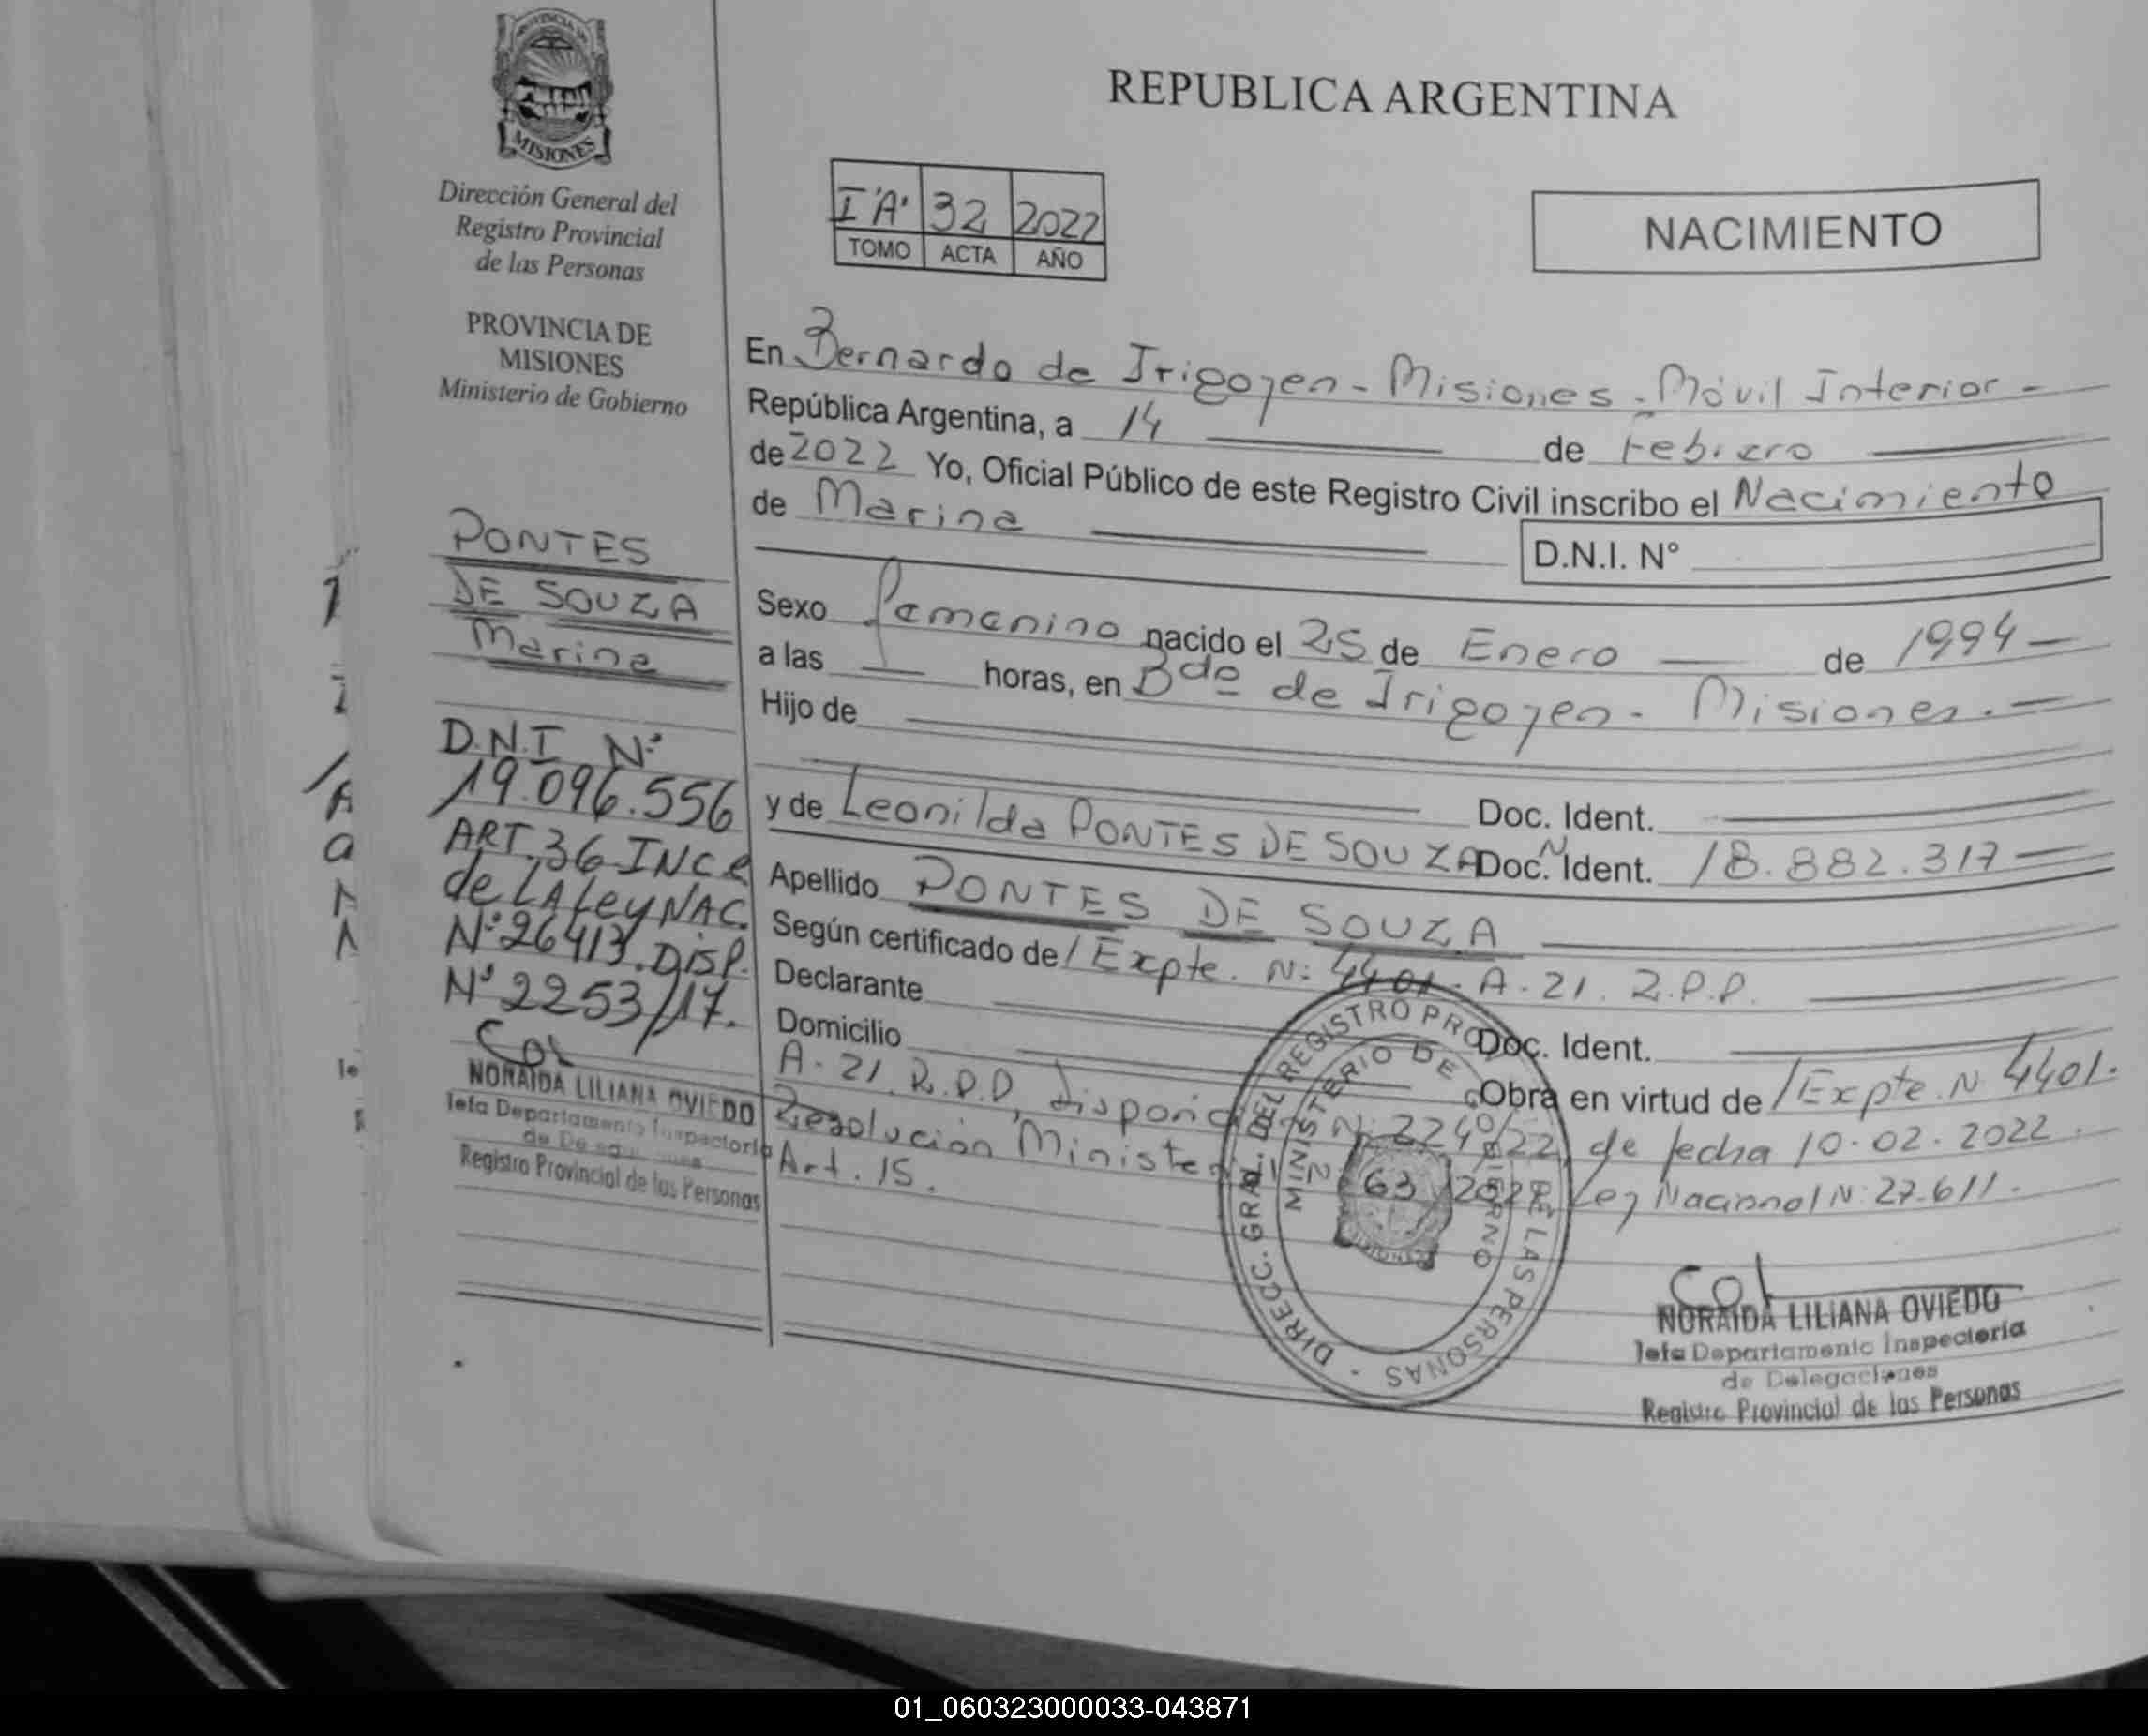 PROVINCIA DE
MISIONES
Dirección General del
Registro Provincial
de las Personas
PROVINCIA DE
MISIONES
Ministerio de Gobierno
PONTES
DE SOUZA
Marina
D.N.I Nº
19.096.556
ART. 36 INC e
de LA Ley NAC.
Nº 26413. DISP.
Nº 2253/17.
NORAIDA LILIANA OVIEDO
Jefa Departamento Inspectoría
de
Registro Provincial de las Personas
REPUBLICA ARGENTINA
I "A" 32 2022
TOMO ACTA AÑO
NACIMIENTO
En Bernardo de Irigoyen - Misiones - Móvil Interior -
República Argentina, a 14 de Febrero
de 2022 Yo, Oficial Público de este Registro Civil inscribo el Nacimiento
de Marina
D.N.I. N°
Sexo Femenino nacido el 25 de Enero de 1994
a las horas, en Bdo de Irigoyen - Misiones. -
Hijo de
Doc. Ident.
y de Leonilda PONTES DE SOUZA Doc. Ident. Nº 18.882.317
Apellido PONTES DE SOUZA
Según certificado de / Expte. Nº 4401 - A - 21. R.P.P.
Declarante Doc. Ident.
Domicilio Obra en virtud de / Expte. Nº 4401.
A - 21. R.P.P, Nº 2240/22, de fecha 10-02-2022.
Resolución 63 Ley Nacional Nº 27.611.
Art. 15.
DIRECC. GRAL. DEL REGISTRO PROV. DE LAS PERSONAS -
MINISTERIO DE GOBIERNO
MISIONES
NORAIDA LILIANA OVIEDO
Jefa Departamento Inspectoría
de Delegaciones
Registro Provincial de las Personas
01_060323000033-043871